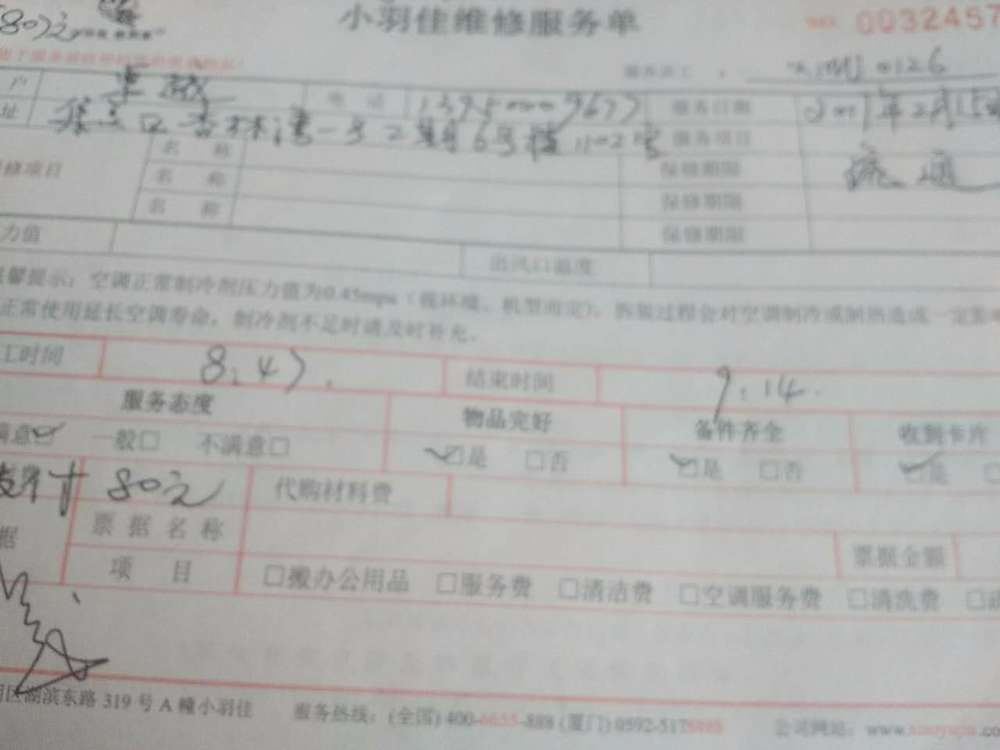 80元
小羽佳维修服务单
0032457
0126
电 话 服务日期
址 杏林湾一号二期6号楼1102室 服务项目
名 称 保修期限 疏通
修项目 名 称 保修期限
名 称 保修期限
力值 出风口温度
温馨提示：空调正常制冷剂压力值为0.45mpa（视环境、机型而定），拆装过程会对空调制冷或制热造成一定影响
正常使用延长空调寿命，制冷剂不足时请及时补充。
工时间 8:47 结束时间 9:14
服务态度 物品完好 备件齐全 收到卡片
满意 一般□ 不满意□ 是 □否 是 □否 是
80元 代购材料费
据 票据名称 票据金额
项 目 □搬办公用品 □服务费 □清洁费 □空调服务费 □清洗费
明区湖滨东路 319 号 A 幢小羽佳 服务热线：(全国) 400-6655-888 (厦门) 0592-5178888 公司网站：www.xiaoyujia.com